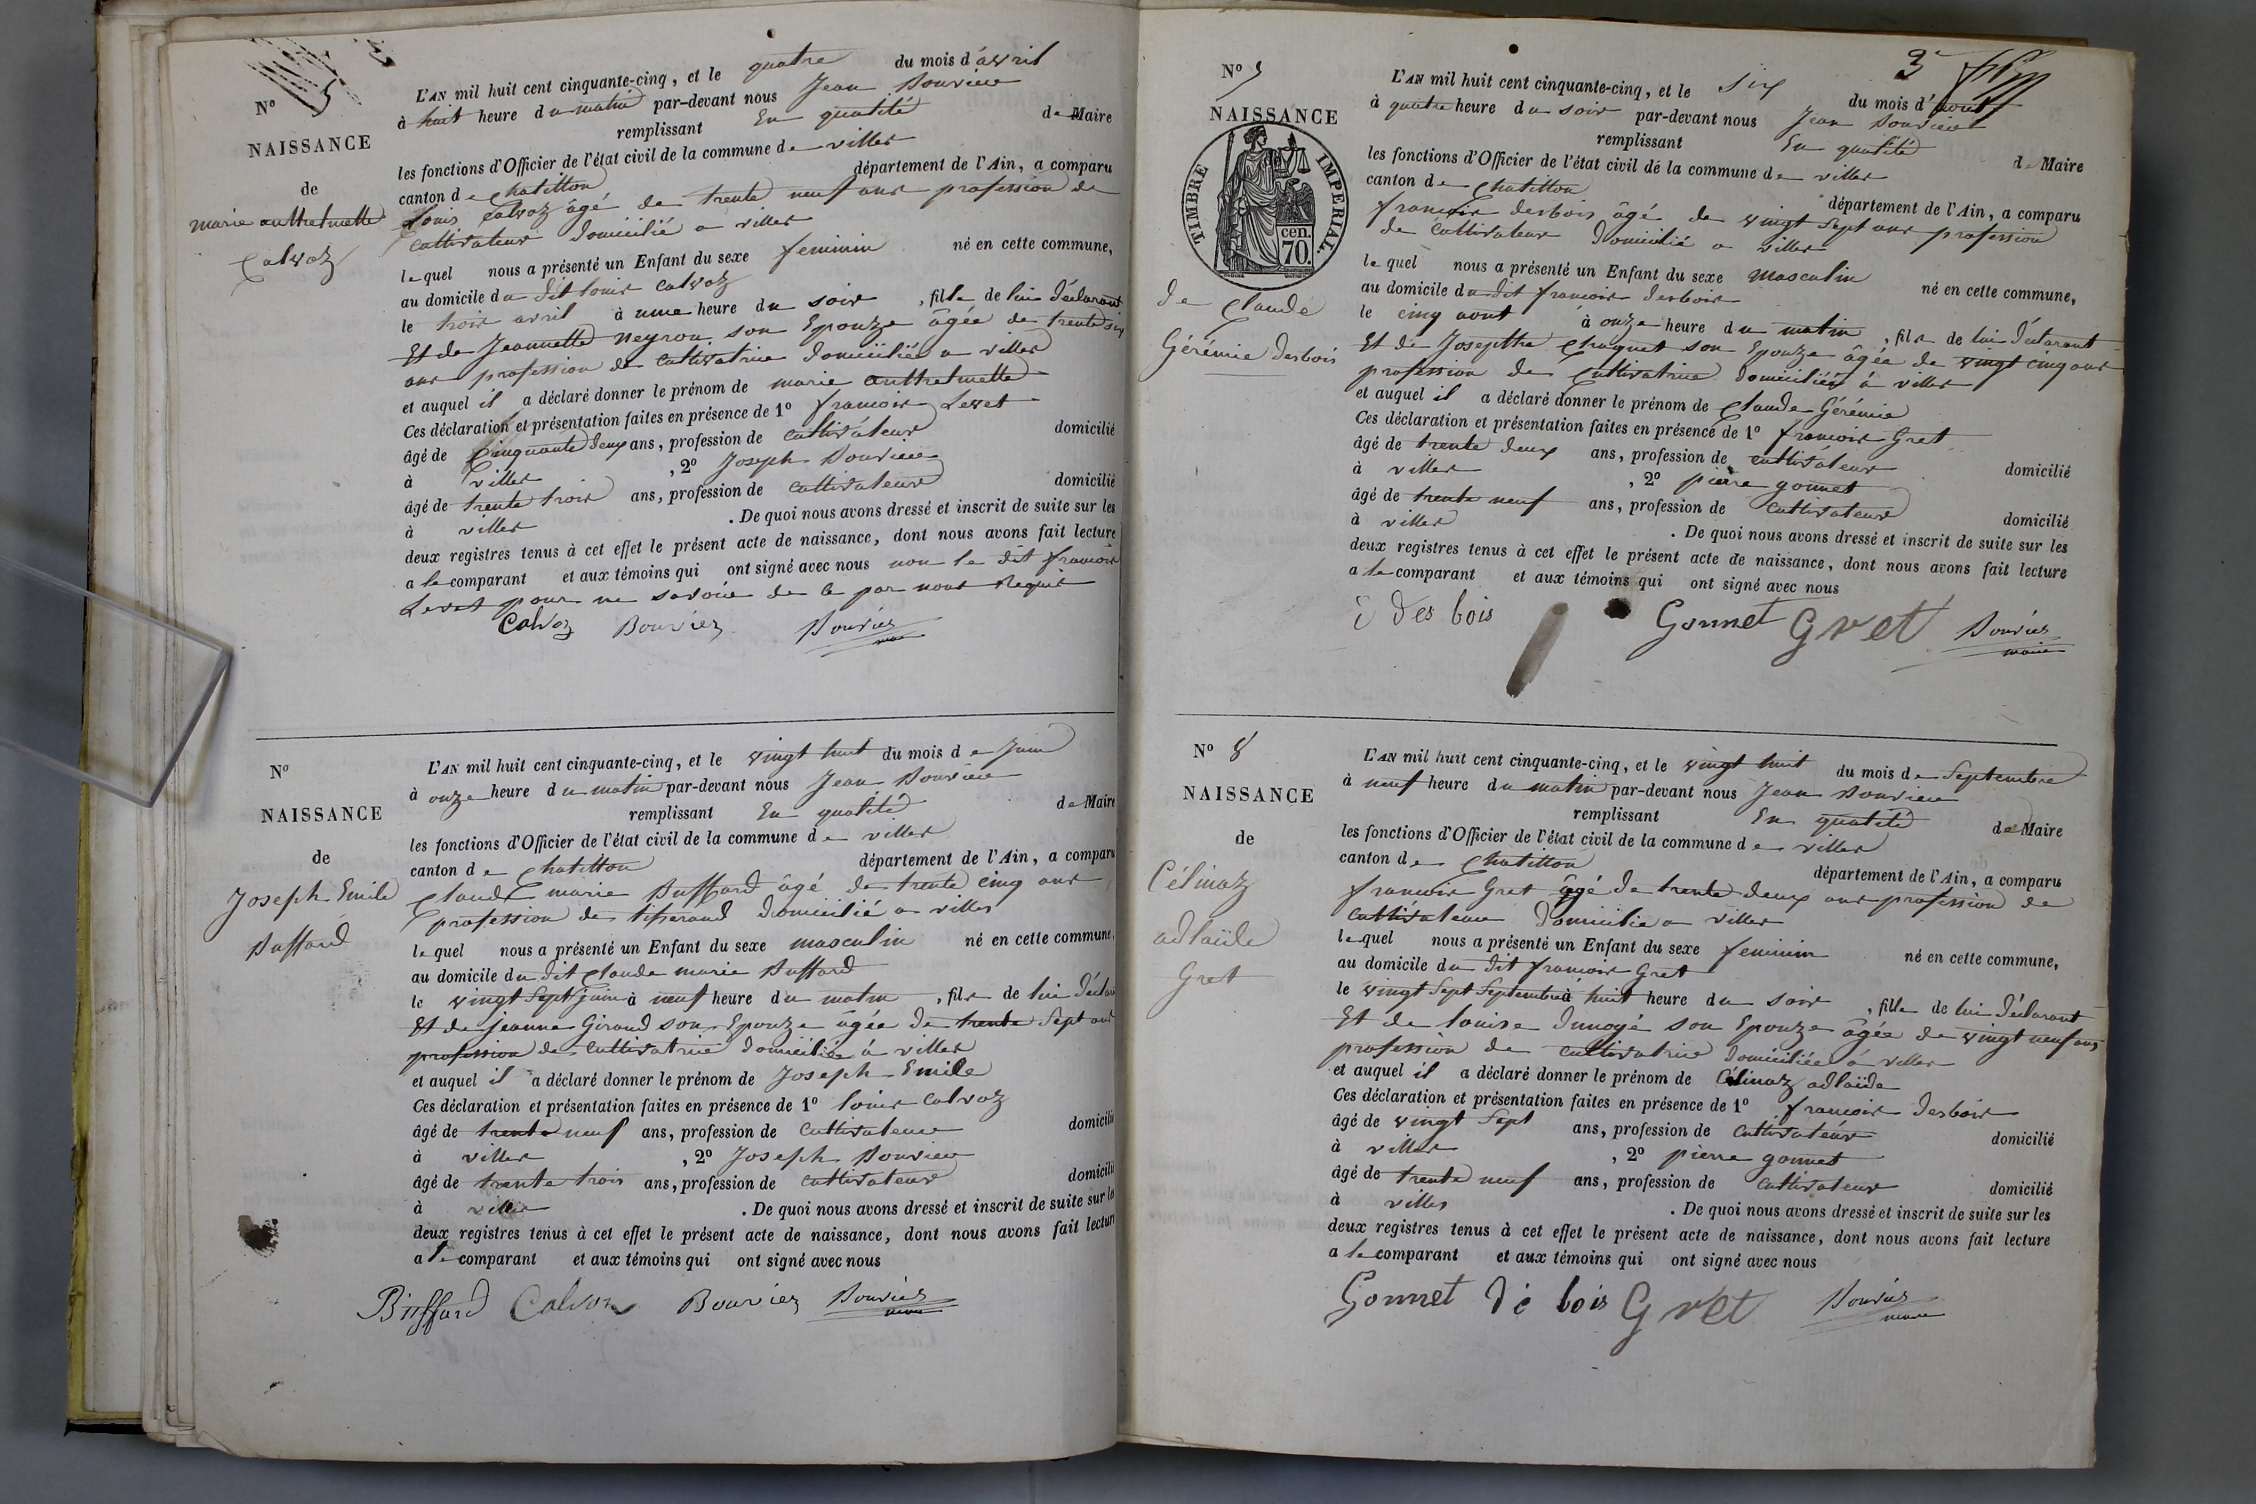 L'AN mil huit cent cinquante-cinq, et le quatre du mois d'avril
à huit heure du matin par-devant nous Jean Bouvier
remplissant En qualité de Maire
les fonctions d'Officier de l'état civil de la commune de villes
canton de Chatillon département de l'Ain, a comparu
Louis Calvoz âgé de trente neuf ans profession de
Cultivateur domicilié a villes
lequel nous a présenté un Enfant du sexe feminin né en cette commune,
au domicile du dit louis Calvoz
le trois avril à une heure du soir, fille de lui déclarant
Et de Jeannette neyron son Epouze âgée de trente six
ans profession de Cultivatrice domiciliée a villes
et auquel il a déclaré donner le prénom de marie anthelmette
Ces déclaration et présentation faites en présence de 1º francois Levet
âgé de Cinquante deux ans, profession de Cultivateur domicilié
à villes, 2º Joseph Bouvier
âgé de trente trois ans, profession de Cultivateur domicilié
à villes. De quoi nous avons dressé et inscrit de suite sur les
deux registres tenus à cet effet le présent acte de naissance, dont nous avons fait lecture
a le comparant et aux témoins qui ont signé avec nous non le dit francois
Levet pour ne savoir de ce par nous Requis
Calvoz Bouviez Bouvier
maire
Nº 5
NAISSANCE
de
marie anthelmette
Calvoz
L'AN mil huit cent cinquante-cinq, et le vingt huit du mois de Juin
à onze heure du matin par-devant nous Jean Bouvier
remplissant En qualité de Maire
les fonctions d'Officier de l'état civil de la commune de villes
canton de Chatillon département de l'Ain, a comparu
Claude marie Buffard âgé de trente cinq ans
profession de tisserand domicilié a villes
lequel nous a présenté un Enfant du sexe masculin né en cette commune,
au domicile du dit Claude marie Buffard
le vingt Sept Juin à neuf heure du matin, fils de lui déclar
Et de jeanne Giroud son Epouze âgée de trente Sept ans
profession de Cultivatrice domiciliée a villes
et auquel il a déclaré donner le prénom de Joseph Emile
Ces déclaration et présentation faites en présence de 1º louis Calvoz
âgé de trente neuf ans, profession de Cultivateur domicilié
à villes, 2º Joseph Bouvier
âgé de trente trois ans, profession de Cultivateur domicilié
à villes. De quoi nous avons dressé et inscrit de suite sur les
deux registres tenus à cet effet le présent acte de naissance, dont nous avons fait lecture
a le comparant et aux témoins qui ont signé avec nous
Buffard Calvoz Bouviez Bouvier
maire
Nº
NAISSANCE
de
Joseph Emile
Buffard
3
L'AN mil huit cent cinquante-cinq, et le six du mois d'aout
à quatre heure du soir par-devant nous Jean Bouvier
remplissant En qualité de Maire
les fonctions d'Officier de l'état civil de la commune de villes
canton de Chatillon département de l'Ain, a comparu
francois desbois âgé de vingt Sept ans profession
de Cultivateur domicilié a villes
lequel nous a présenté un Enfant du sexe masculin né en cette commune,
au domicile du dit francois desbois
le cinq aout à onze heure du matin, fils de lui déclarant
Et de Josepthe Chaquet son Epouze âgée de vingt cinq ans
profession de Cultivatrice domiciliée a villes
et auquel il a déclaré donner le prénom de Claude Gérémie
Ces déclaration et présentation faites en présence de 1º francois Gret
âgé de trente deux ans, profession de cultivateur domicilié
à villes, 2º pierre gonnet
âgé de trente neuf ans, profession de Cultivateur domicilié
à villes. De quoi nous avons dressé et inscrit de suite sur les
deux registres tenus à cet effet le présent acte de naissance, dont nous avons fait lecture
a le comparant et aux témoins qui ont signé avec nous
des bois Gonnet Gret Bouvier
maire
Nº
NAISSANCE
TIMBRE IMPERIAL.
cen.
70.
de Claude
Gérémie desbois
L'AN mil huit cent cinquante-cinq, et le vingt huit du mois de Septembre
à neuf heure du matin par-devant nous Jean Bouvier
remplissant En qualité de Maire
les fonctions d'Officier de l'état civil de la commune de villes
canton de Chatillon département de l'Ain, a comparu
francois Gret âgé de trente deux ans profession de
cultivateur domicilié a villes
lequel nous a présenté un Enfant du sexe feminin né en cette commune,
au domicile du dit francois Gret
le vingt Sept Septembre à huit heure du soir, fille de lui déclarant
Et de louise dunoyé son Epouze âgée de vingt neuf ans
profession de cultivatrice domiciliée a villes
et auquel il a déclaré donner le prénom de Célinaz adlaïde
Ces déclaration et présentation faites en présence de 1º francois desbois
âgé de vingt Sept ans, profession de Cultivateur domicilié
à villes, 2º pierre gonnet
âgé de trente neuf ans, profession de Cultivateur domicilié
à villes. De quoi nous avons dressé et inscrit de suite sur les
deux registres tenus à cet effet le présent acte de naissance, dont nous avons fait lecture
a le comparant et aux témoins qui ont signé avec nous
Gonnet dé bois Gret Bouvier
maire
Nº 8
NAISSANCE
de
Célinaz
adlaïde
Gret